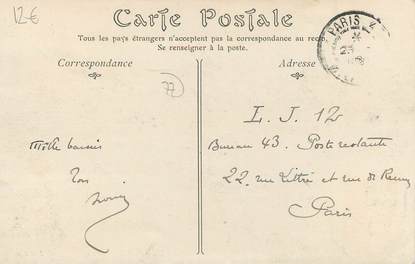 12€
Carte Postale
Tous les pays étrangers n'acceptent pas la correspondance au recto.
Se renseigner à la poste.
Correspondance
Adresse
PARIS
77
Mille baisers
Ton
L. J. 12
Bureau 43. Poste restante
22, rue Littré et rue de Rennes
Paris